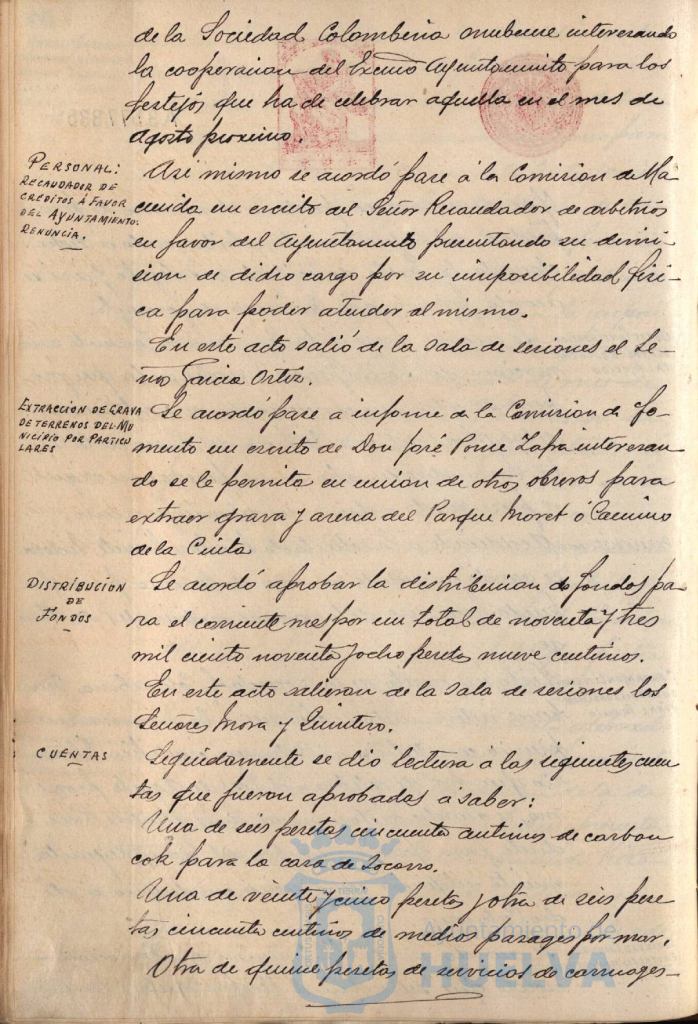 de la Sociedad Colombina onubense interesando
la cooperacion del Excmo Ayuntamiento para los
festejos que ha de celebrar aquella en el mes de
agosto proximo.
PERSONAL:
RECAUDADOR DE
CREDITOS Á FAVOR
DEL AYUNTAMIENTO.
RENUNCIA.
Asi mismo se acordó pase á la Comision de Ha-
cienda un escrito del Señor Recaudador de arbitrios
en favor del Ayuntamiento presentando su dimi-
sion de dicho cargo por su imposibilidad fisi-
ca para poder atender al mismo.
En este acto salió de la sala de sesiones el Se-
ñor Garcia Ortiz.
EXTRACCION DE GRAVA
DE TERRENOS DEL MU
NICIPIO POR PARTICU
LARES
Se acordó pase a informe de la Comision de Fo-
mento un escrito de Don José Ponce Zafra interesan-
do se le permita en union de otros obreros para
extraer grava y arena del Parque Moret ó Camino
de la Cinta
DISTRIBUCION
DE
FONDOS
Se acordó aprobar la distribucion de fondos pa
ra el corriente mes por un total de noventa y tres
mil ciento noventa y ocho pesetas nueve centimos.
En este acto salieron de la sala de sesiones los
Señores Mora y Quintero.
CUENTAS
Seguidamente se dio lectura á las siguientes cuen
tas que fueron aprobadas á saber:
Una de seis pesetas cincuenta centimos de carbon
cok para la casa de Socorro.
Una de veinte y cinco pesetas y otra de seis pese
tas cincuenta centimos de medios pasages por mar.
Otra de quince pesetas de servicios de carruages-
Ayuntamiento de
HUELVA